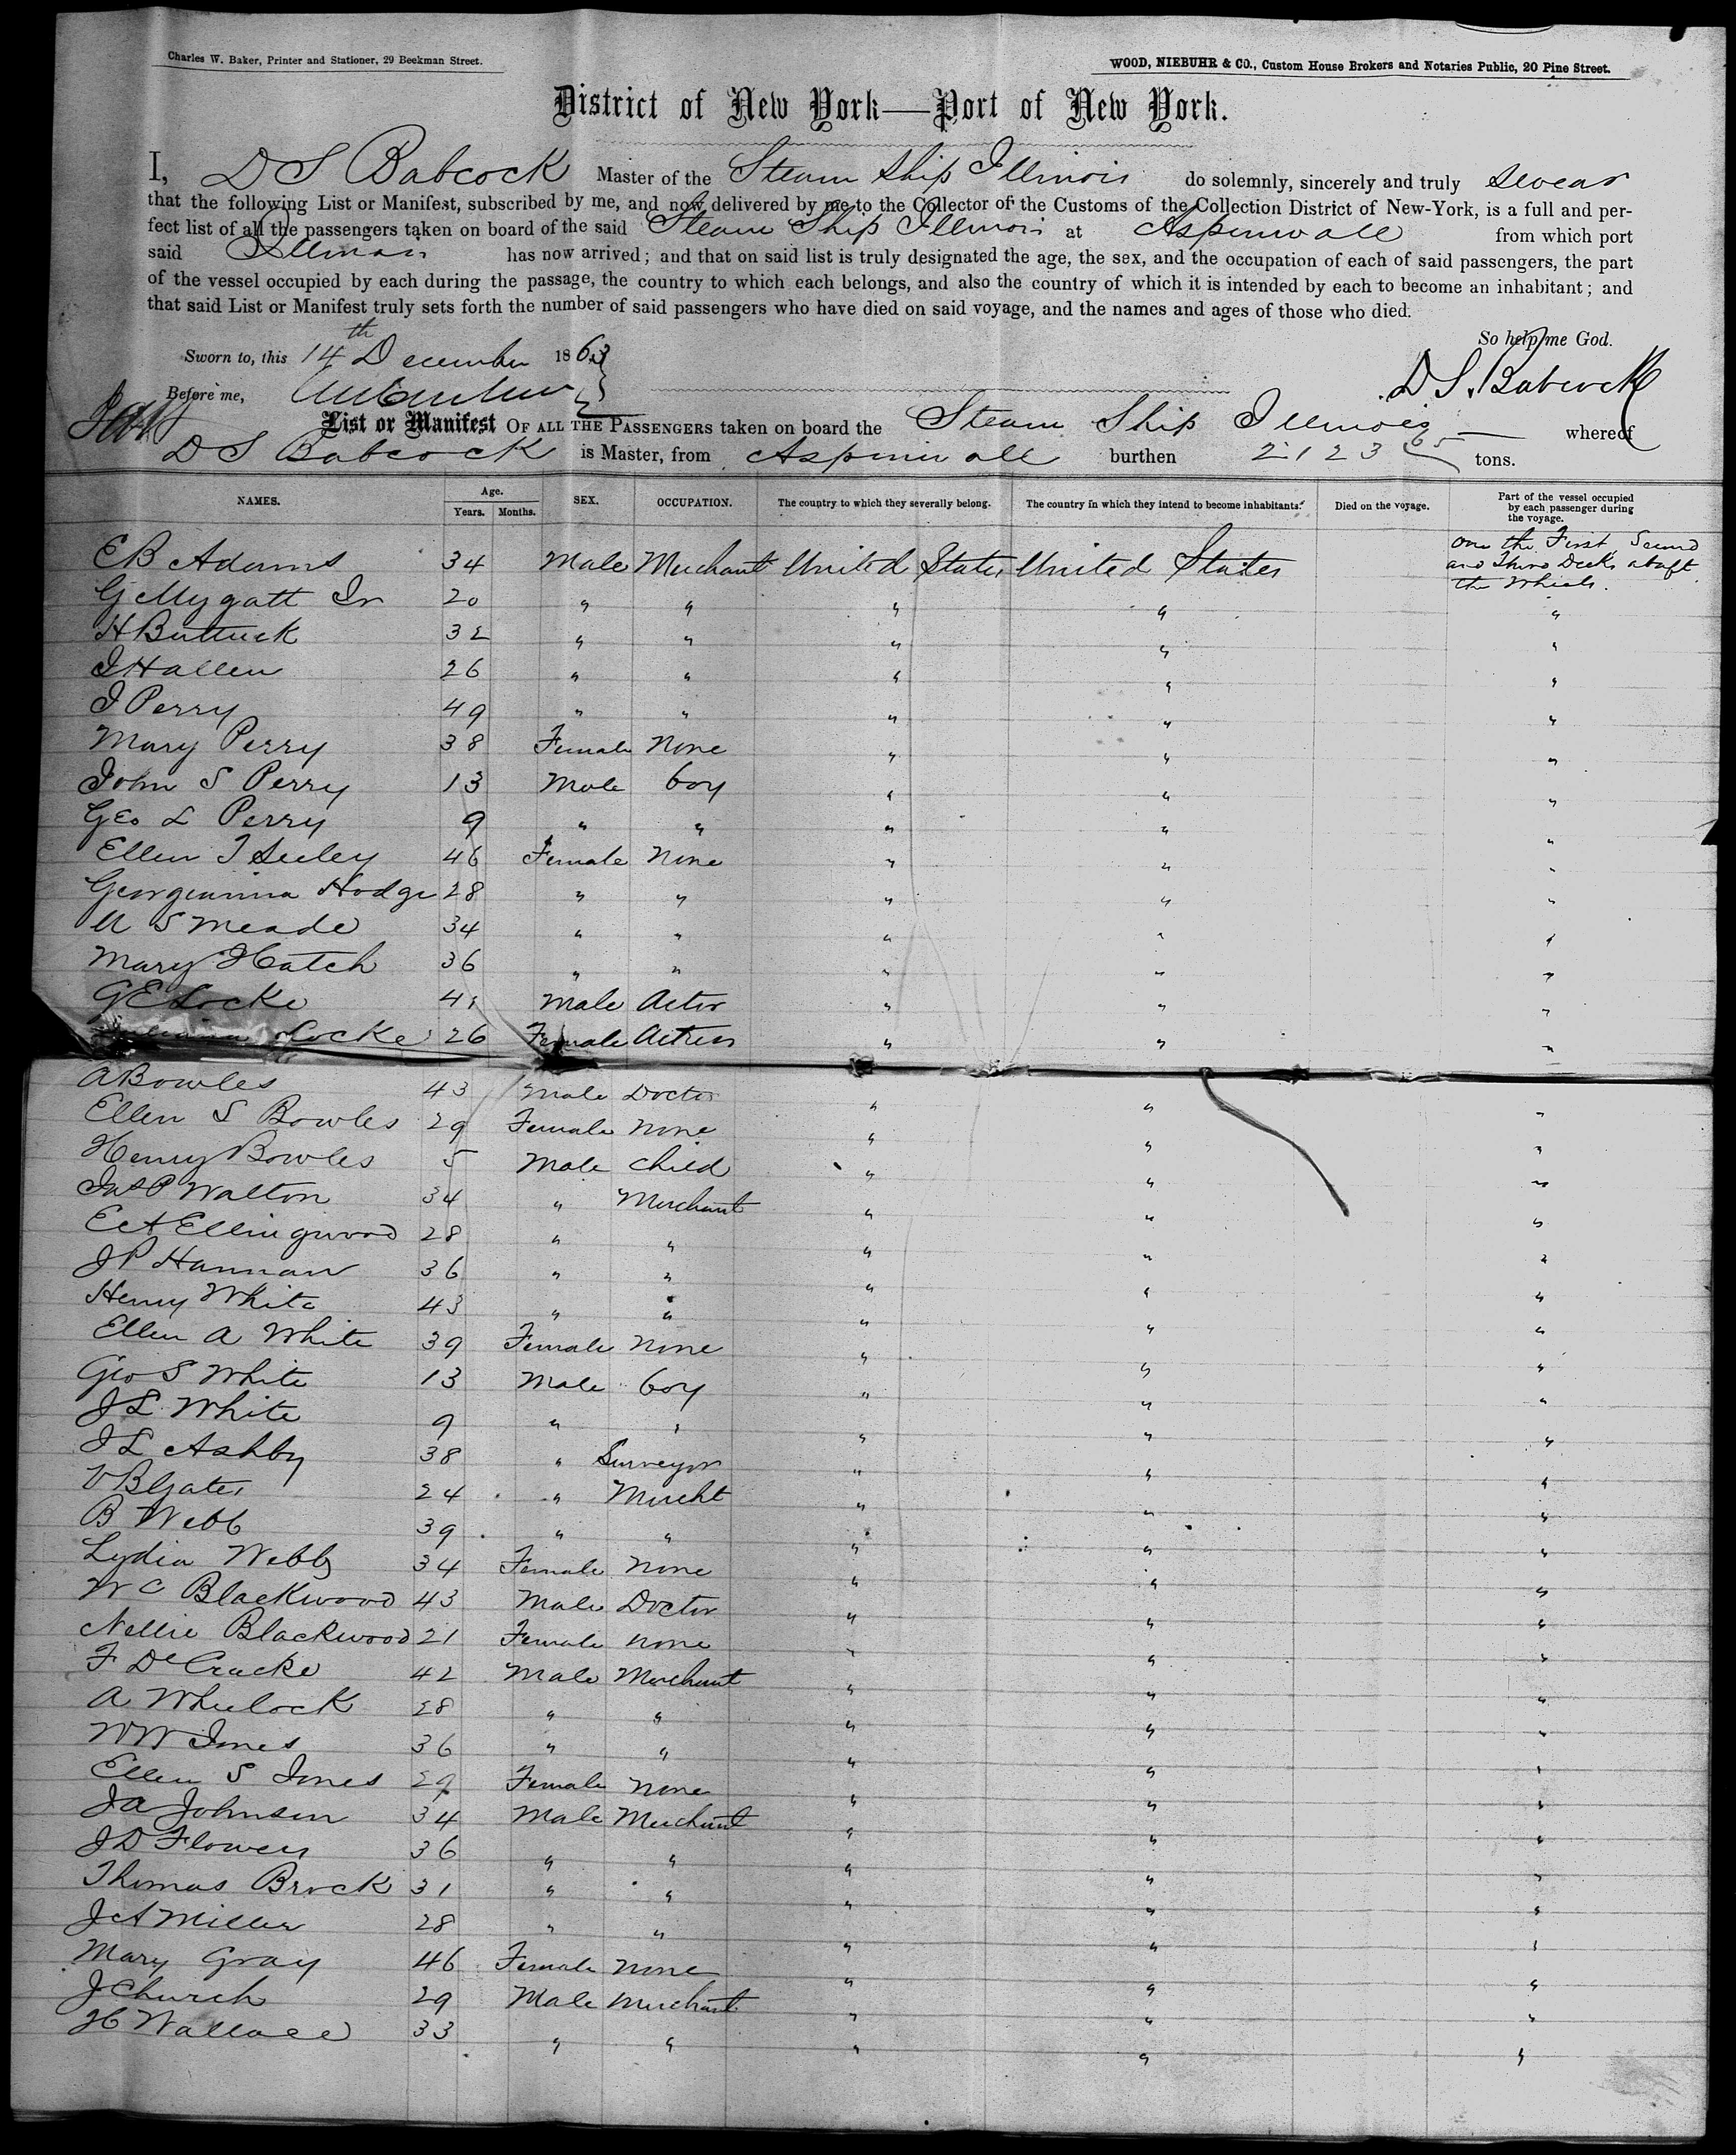 Charles W. Baker, Printer and Stationer, 29 Beekman Street.
WOOD, NIEBUHR & CO., Custom House Brokers and Notaries Public, 20 Pine Street.
District of New York—Port of New York.
I, D S Babcock Master of the Steam Ship Illinois do solemnly, sincerely and truly swear
that the following List or Manifest, subscribed by me, and now delivered by me to the Collector of the Customs of the Collection District of New-York, is a full and per-
fect list of all the passengers taken on board of the said Steam Ship Illinois at Aspinwall from which port
said Illinois has now arrived; and that on said list is truly designated the age, the sex, and the occupation of each of said passengers, the part
of the vessel occupied by each during the passage, the country to which each belongs, and also the country of which it is intended by each to become an inhabitant; and
that said List or Manifest truly sets forth the number of said passengers who have died on said voyage, and the names and ages of those who died.
So help me God.
Sworn to, this 14th December 1863
D S. Babcock
Before me,
List or Manifest OF ALL THE PASSENGERS taken on board the Steam Ship Illinois whereof
D S Babcock is Master, from Aspinwall burthen 2123 65 tons.
NAMES. Age. Years. Months. SEX. OCCUPATION. The country to which they severally belong. The country in which they intend to become inhabitants. Died on the voyage. Part of the vessel occupied by each passenger during the voyage.
E B Adams 34 Male Merchant United States United States on the First Second and Third Decks abaft the Wheels.
G Mygatt Jr 20 " " " " "
H 32 " " " " "
J Hallen 26 " " " " "
J Perry 49 " " " " "
Mary Perry 38 Female None " " "
John S Perry 13 Male boy " " "
Geo L Perry 9 " " " " "
Ellen T Seeley 46 Female None " " "
Georgeanna Hodge 28 " " " " "
S Meade 34 " " " " "
Mary Hatch 36 " " " " "
G E Locke 41 Male Actor " " "
Locke 26 Female Actress " " "
A Bowles 43 Male Doctor " " "
Ellen S Bowles 29 Female None " " "
Henry Bowles 5 Male child " " "
Jas P Walton 34 " Merchant " " "
E A Ellingwood 28 " " " " "
J P Hannan 36 " " " " "
Henry White 43 " " " " "
Ellen A White 39 Female None " " "
Geo S White 13 Male boy " " "
J L White 9 " " " " "
J L Ashby 38 " Surveyor " " "
V B Gates 24 " Mercht " " "
B Webb 39 " " " " "
Lydia Webb 34 Female None " " "
W C Blackwood 43 Male Doctor " " "
Nellie Blackwood 21 Female none " " "
F De 42 Male Merchant " " "
A Wheelock 28 " " " " "
W W Jones 36 " " " " "
Ellen S Jones 29 Female none " " "
J A Johnson 34 Male Merchant " " "
J D Flowers 36 " " " " "
Thomas Brock 31 " " " " "
J A Miller 28 " " " " "
Mary Gray 46 Female none " " "
J Church 29 Male Merchant " " "
H Wallace 33 " " " " "